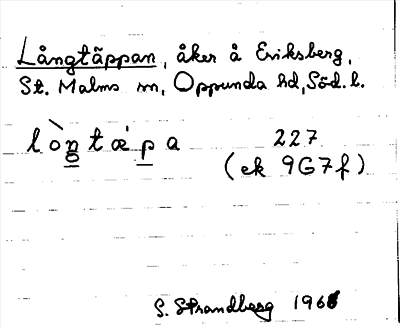 Långtäppan, åker å Eriksberg,
St. Malms sn, Oppunda hd, Söd. l.
lòŋtæ̍pa 227
(ek 9G7f)
S. Strandberg 1968